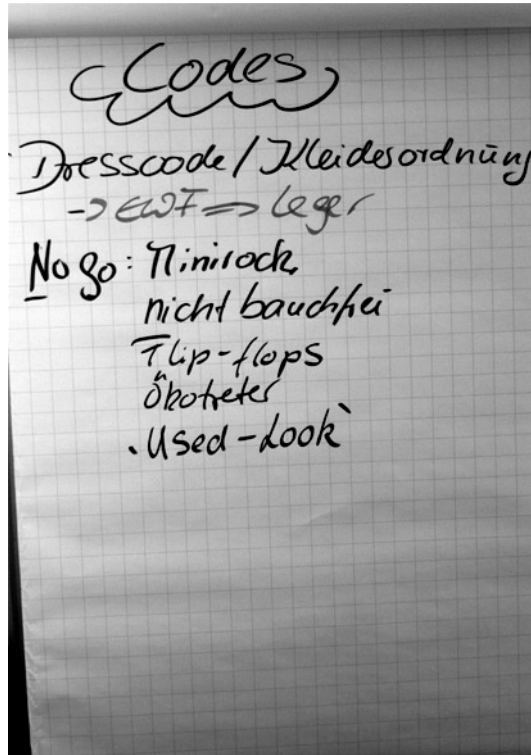 Codes
Dresscode / Kleidesordnung
-> EWF => leger
No go: Minirock,
nicht bauchfrei
Flip-flops
Ökotreter
. Used-Look